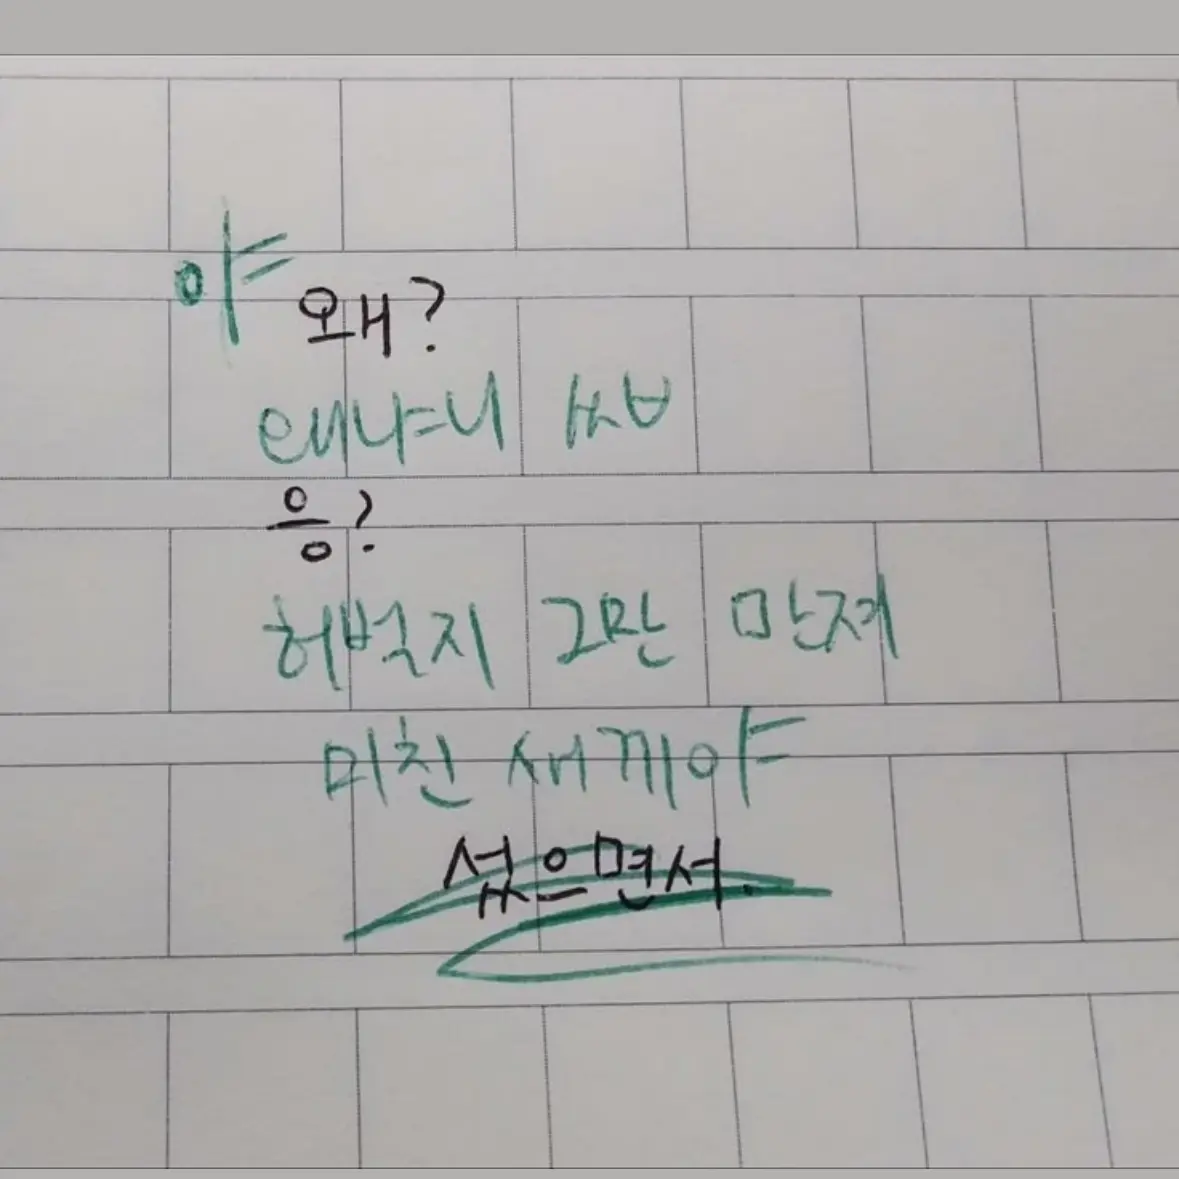 야 왜?
왜냐니 씨ㅂ
응?
허벅지 그만 만져
미친 새끼야
섰으면서